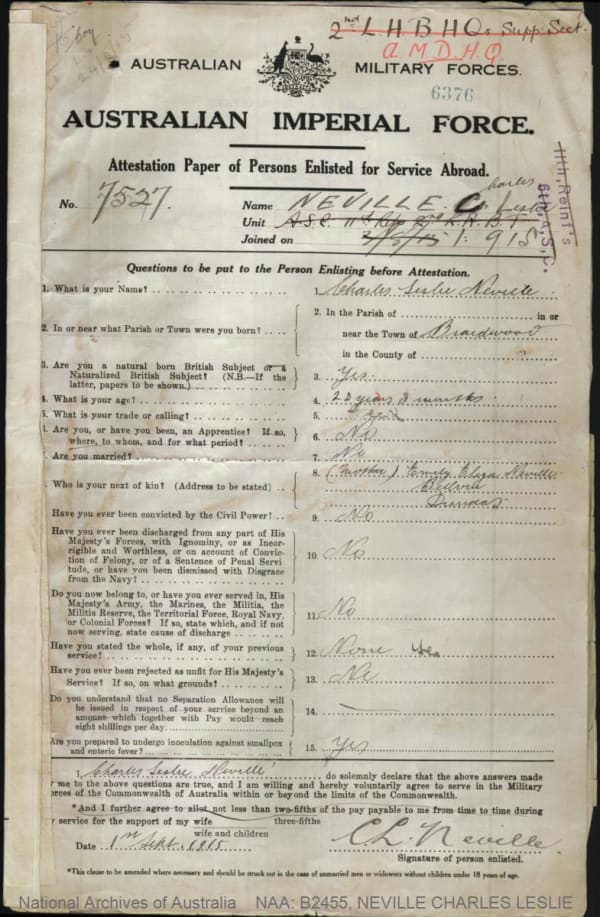 2nd L.H.B HQs Supp: Sect.
A.M.D.H.Q
AUSTRALIAN MILITARY FORCES.
6376
AUSTRALIAN IMPERIAL FORCE.
Attestation Paper of Persons Enlisted for Service Abroad.
No. 7527. Name NEVILLE. C. Charles Leslie
Unit A.S.C. 11th Rfts 2nd L.H.B.T
Joined on 1. 9 15
11th Reinf's
6th A.S.C.
Questions to be put to the Person Enlisting before Attestation.
1. What is your Name? 1. Charles Leslie Neville
2. In or near what Parish or Town were you born? 2. In the Parish of in or
near the Town of Braidwood
in the County of
3. Are you a natural born British Subject or a
Naturalized British Subject? (N.B.—If the
latter, papers to be shown.) 3. Yes
4. What is your age? 4. 23 years 8 months
5. What is your trade or calling? 5.
. Are you, or have you been, an Apprentice? If so,
where, to whom, and for what period? 6. No
. Are you married? 7. No
. Who is your next of kin? (Address to be stated) 8. (Mother) Emily Eliza Neville
Dundas
Have you ever been convicted by the Civil Power? 9. No
Have you ever been discharged from any part of His
Majesty's Forces, with Ignominy, or as Incor-
rigible and Worthless, or on account of Convic-
tion of Felony, or of a Sentence of Penal Servi
tude, or have you been dismissed with Disgrace
from the Navy? 10. No
Do you now belong to, or have you ever served in, His
Majesty's Army, the Marines, the Militia, the
Militia Reserve, the Territorial Force, Royal Navy,
or Colonial Forces? If so, state which, and if not
now serving, state cause of discharge 11. No
Have you stated the whole, if any, of your previous
service? 12. None Yes
Have you ever been rejected as unfit for His Majesty's
Service? If so, on what grounds? 13. No
Do you understand that no Separation Allowance will
be issued in respect of your service beyond an
amount which together with Pay would reach
eight shillings per day. 14.
Are you prepared to undergo inoculation against smallpox
and enteric fever? 15. Yes
I, Charles Leslie Neville do solemnly declare that the above answers made
me to the above questions are true, and I am willing and hereby voluntarily agree to serve in the Military
rces of the Commonwealth of Australia within or beyond the limits of the Commonwealth.
*And I further agree to allot not less than two-fifths of the pay payable to me from time to time during
three-fifths
service for the support of my wife
wife and children
Date 1st Sept. 1915 C L. Neville
Signature of person enlisted.
*This clause to be amended where necessary and should be struck out in the case of unmarried men or widowers without children under 18 years of age.
National Archives of Australia NAA: B2455, NEVILLE CHARLES LESLIE